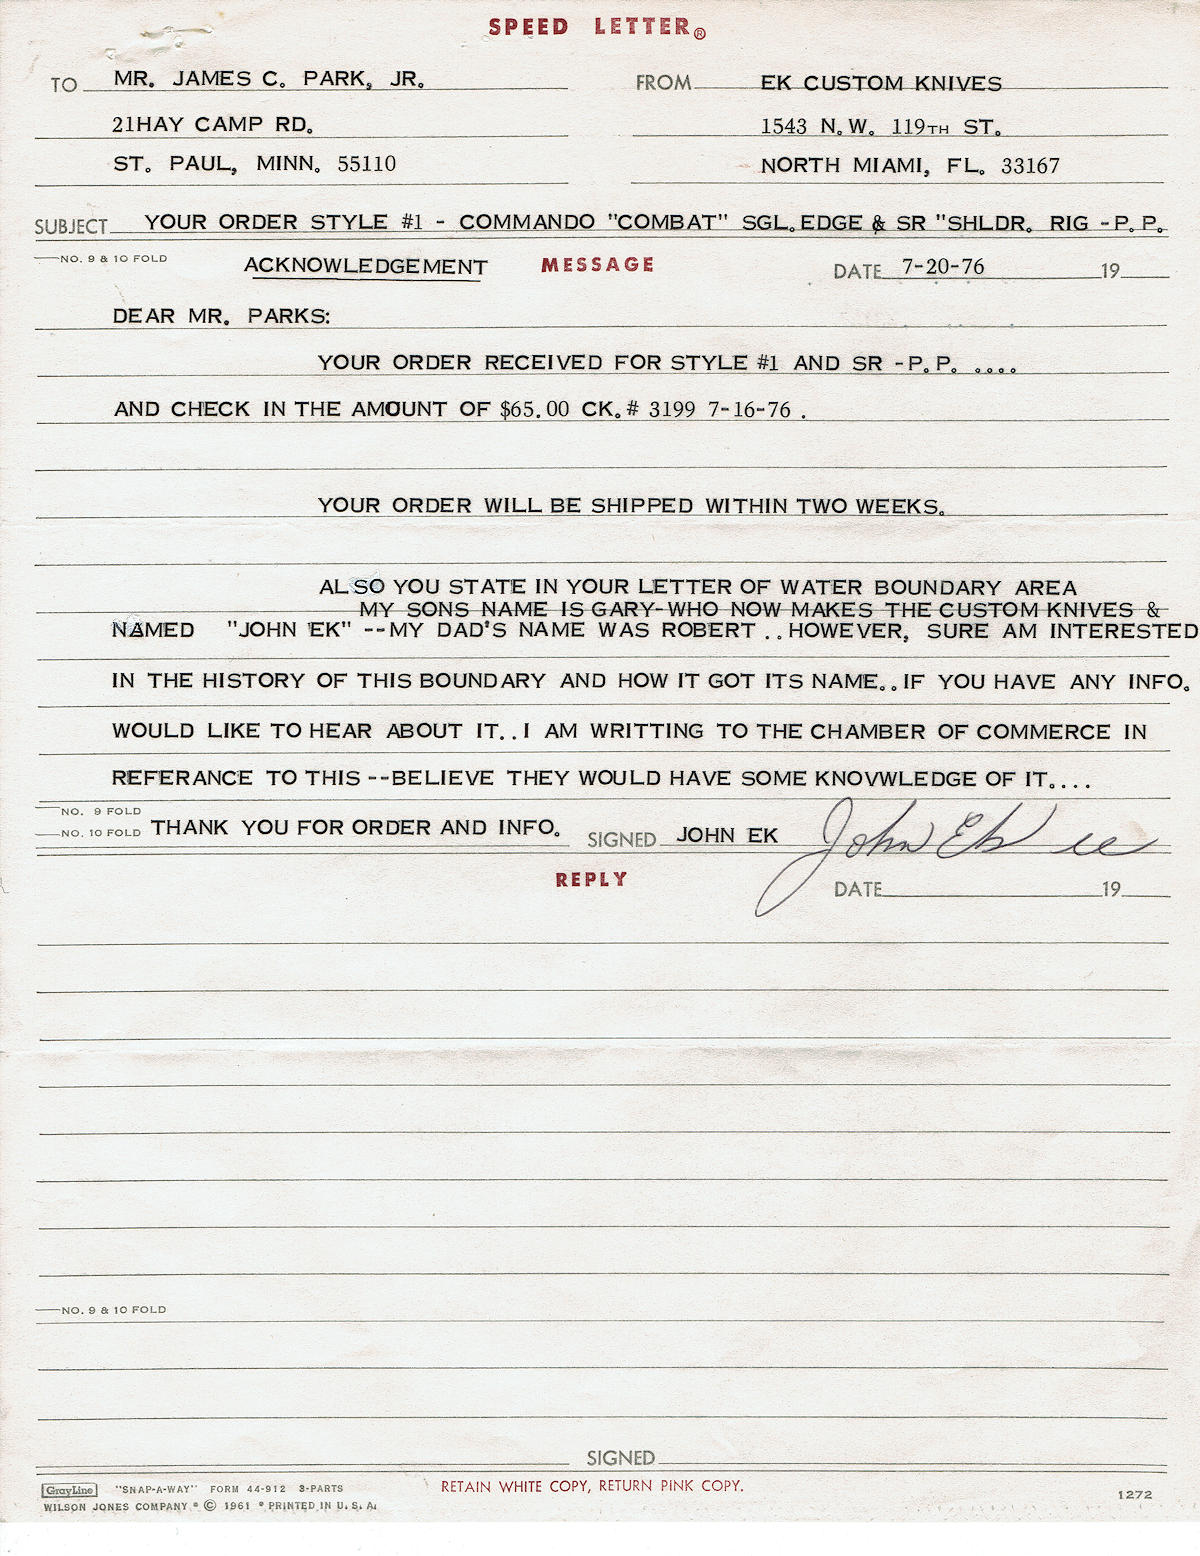 SPEED LETTER®
TO MR. JAMES C. PARK, JR. FROM EK CUSTOM KNIVES
21HAY CAMP RD. 1543 N.W. 119TH ST.
ST. PAUL, MINN. 55110 NORTH MIAMI, FL. 33167
SUBJECT YOUR ORDER STYLE #1 - COMMANDO "COMBAT" SGL. EDGE & SR "SHLDR. RIG -P.P.
NO. 9 & 10 FOLD ACKNOWLEDGEMENT MESSAGE DATE 7-20-76 19
DEAR MR. PARKS:
YOUR ORDER RECEIVED FOR STYLE #1 AND SR -P.P. ....
AND CHECK IN THE AMOUNT OF $65.00 CK.# 3199 7-16-76 .
YOUR ORDER WILL BE SHIPPED WITHIN TWO WEEKS.
ALSO YOU STATE IN YOUR LETTER OF WATER BOUNDARY AREA
MY SONS NAME IS GARY-WHO NOW MAKES THE CUSTOM KNIVES &
NAMED "JOHN EK" --MY DAD'S NAME WAS ROBERT ..HOWEVER, SURE AM INTERESTED
IN THE HISTORY OF THIS BOUNDARY AND HOW IT GOT ITS NAME..IF YOU HAVE ANY INFO.
WOULD LIKE TO HEAR ABOUT IT..I AM WRITTING TO THE CHAMBER OF COMMERCE IN
REFERANCE TO THIS --BELIEVE THEY WOULD HAVE SOME KNOVWLEDGE OF IT....
NO. 9 FOLD
NO. 10 FOLD THANK YOU FOR ORDER AND INFO. SIGNED JOHN EK John Ek
REPLY DATE 19
NO. 9 & 10 FOLD
SIGNED
GrayLine "SNAP-A-WAY" FORM 44-912 3-PARTS RETAIN WHITE COPY, RETURN PINK COPY. 1272
WILSON JONES COMPANY • © 1961 • PRINTED IN U.S.A.